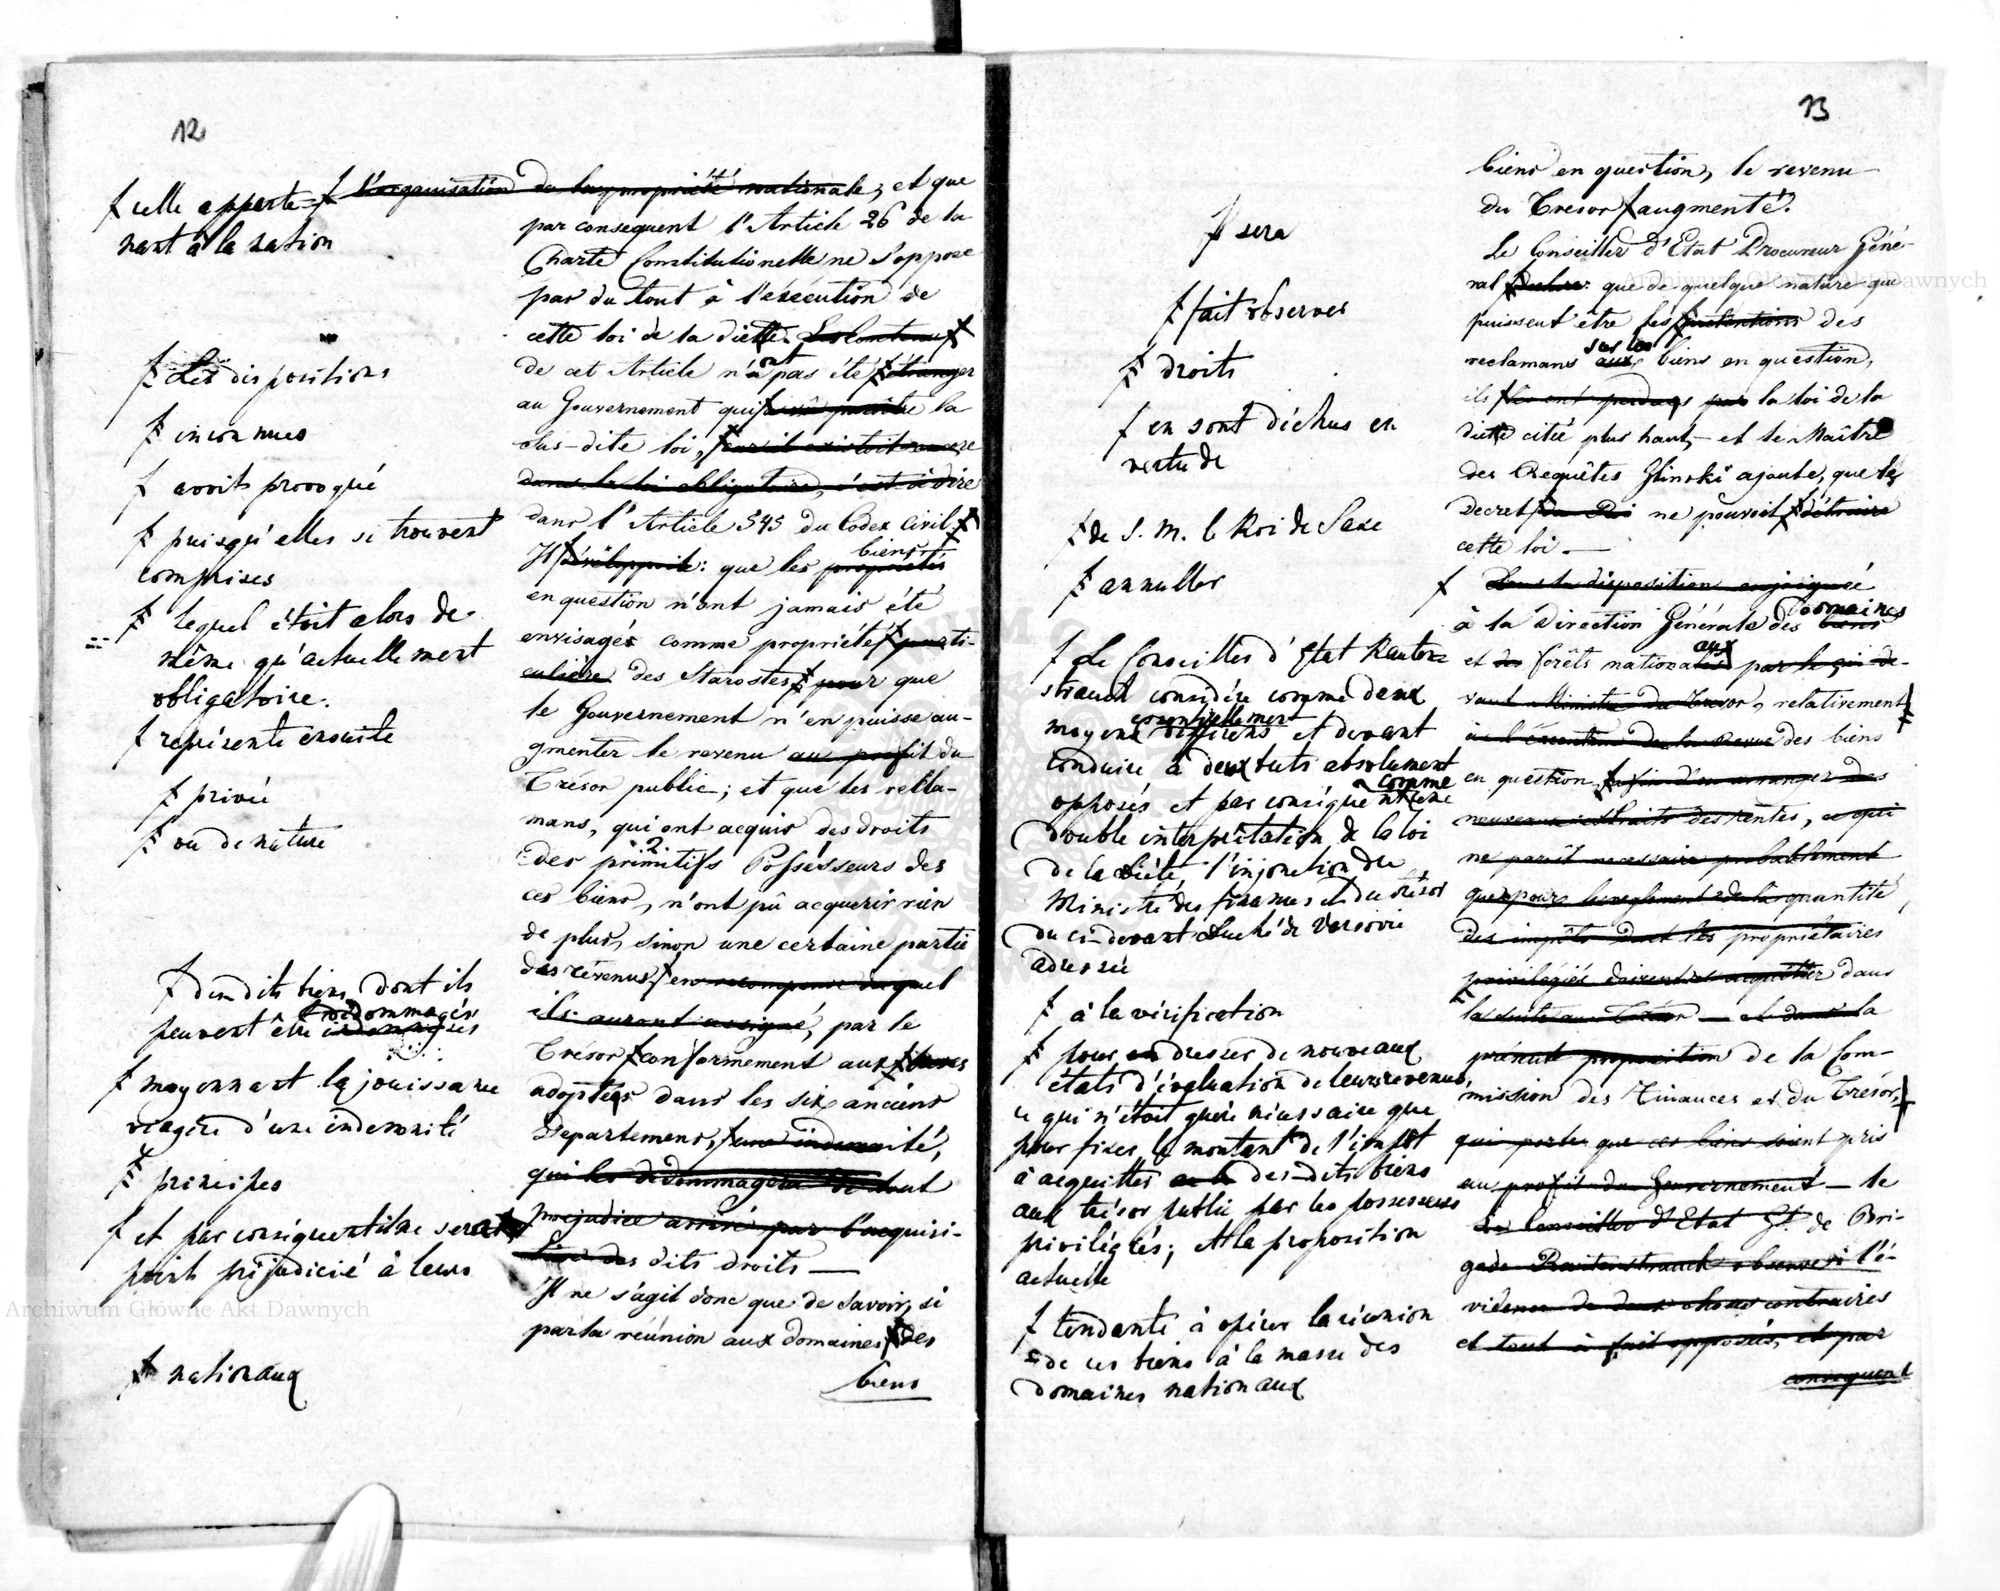 12
ƒ celle apparte-
nant à la nation
ƒ Les dispositions
ƒ inconnues
ƒ avoit provoqué
ƒ puisqu'elles se trouvent
comprises
ƒ lequel étoit alors de
même qu'actuellement
obligatoire.
ƒ représente ensuite
ƒ privée
ƒ ou de nature
ƒ des dits biens dont ils
peuvent être dédommagés
ƒ moyennant la jouissance
viagère d'une indemnité
ƒ principes
ƒ et par conséquent il ne sera
point préjudicié à leurs
ƒ nationaux
ƒ l'organisation de la propriété nationale; et que
par consequent l'Article 26 de la
Charte Constitutionelle ne s'oppose
pas du tout à l'éxécution de
cette loi de la diette. Le contenu
de cet Article n'ont pas été étranger
au Gouvernement qui la
sus-dite loi, car il existoit encore
dans la loi obligatoire, c'est à dire
dans l'Article 545 du Codex Civil
Il développoit: que les propriétés biens
en question n'ont jamais été
envisagés comme propriété parti-
culière des Starostes pour que
le Gouvernement n'en puisse au-
gmenter le revenu au profit du
Trésor public; et que les recla-
mans, qui ont acquis des droits
des primitifs Possesseurs des
ces biens, n'ont pû acquerir rien
de plus, sinon une certaine partie
des révenus, en recompense duquel
ils auront assigné, par le
Trésor conformement aux
adoptés dans les six anciens
Departemens, une indemnité,
qui les dédommagera de tout
prejudice arrivé par l'acquisi-
tion des dits droits —
Il ne s'agit donc que de savoir, si
par la réunion aux domaines des
biens
13
ƒ sera
ƒ fait observer
ƒ droits
ƒ en sont déchus en
vertu de
ƒ de S. M. le Roi de Saxe
ƒ annuller
ƒ Le Conseiller d'Etat Rauten-
strauch considère comme deux
moyens essentiellement differens et devant
conduire à deux buts absolument
opposés et par conséquent comme une
double interprétation de la loi
de la diète, l'injonction du
Ministre des finances et du trésor
du ci-devant duché de Varsovie
adressée
ƒ à la vérification
ƒ pour en dresser de nouveaux
états d'évaluation de leurs revenus,
ce qui n'étoit guère nécessaire que
pour fixer le montant de l'impôt
à acquitter des-dits biens
aux trésor public par les possesseurs
priviléglés; et la proposition
actuelle
ƒ tendante à opérer la réunion
de ces biens à la masse des
domaines nationaux
biens en question, le revenu
du Tresor ƒ augmenté.
Le Conseiller d'Etat Procureur Géné-
ral que de quelque nature que
puissent être les prétentions des
reclamans sur les aux biens en question,
ils perdus par la loi de la
diete citée plus haut, — et le Maître
des Requêtes Glinski ajoute, que le
Decret du Roi ne pouvoit détruire
cette loi. —
ƒ Dans la disposition enjoignée
à la Direction Générale des biens Domaines
et des forêts nationales aux par le ci-de-
vant Ministre du Tresor, relativement
à l'éxécution de la Revue des biens
en question, afin d'en arranger des
nouveaux extraits des rentes, ce qui
ne paroit necessaire probablement
que pour le reglement de la quantité
des impôts dont les propriétaires
privilégiés doivent s'acquitter dans
la suite au Trésor — et dans la
présente proposition de la Com-
mission des Finances et du Trésor,
qui porte que ces biens soient pris
au profit du Gouvernement — le
Le Conseiller d'Etat Gl. de Bri-
gade Rautenstrauch observe ici l'é-
vidence de deux choses contraires
et tout à fait opposées, et par
consequent
Archiwum Główne Akt Dawnych
Archiwum Główne Akt Dawnych